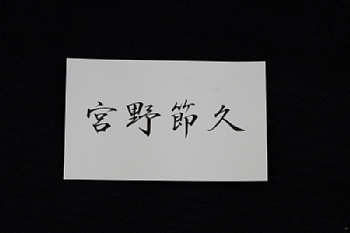 宮野節久